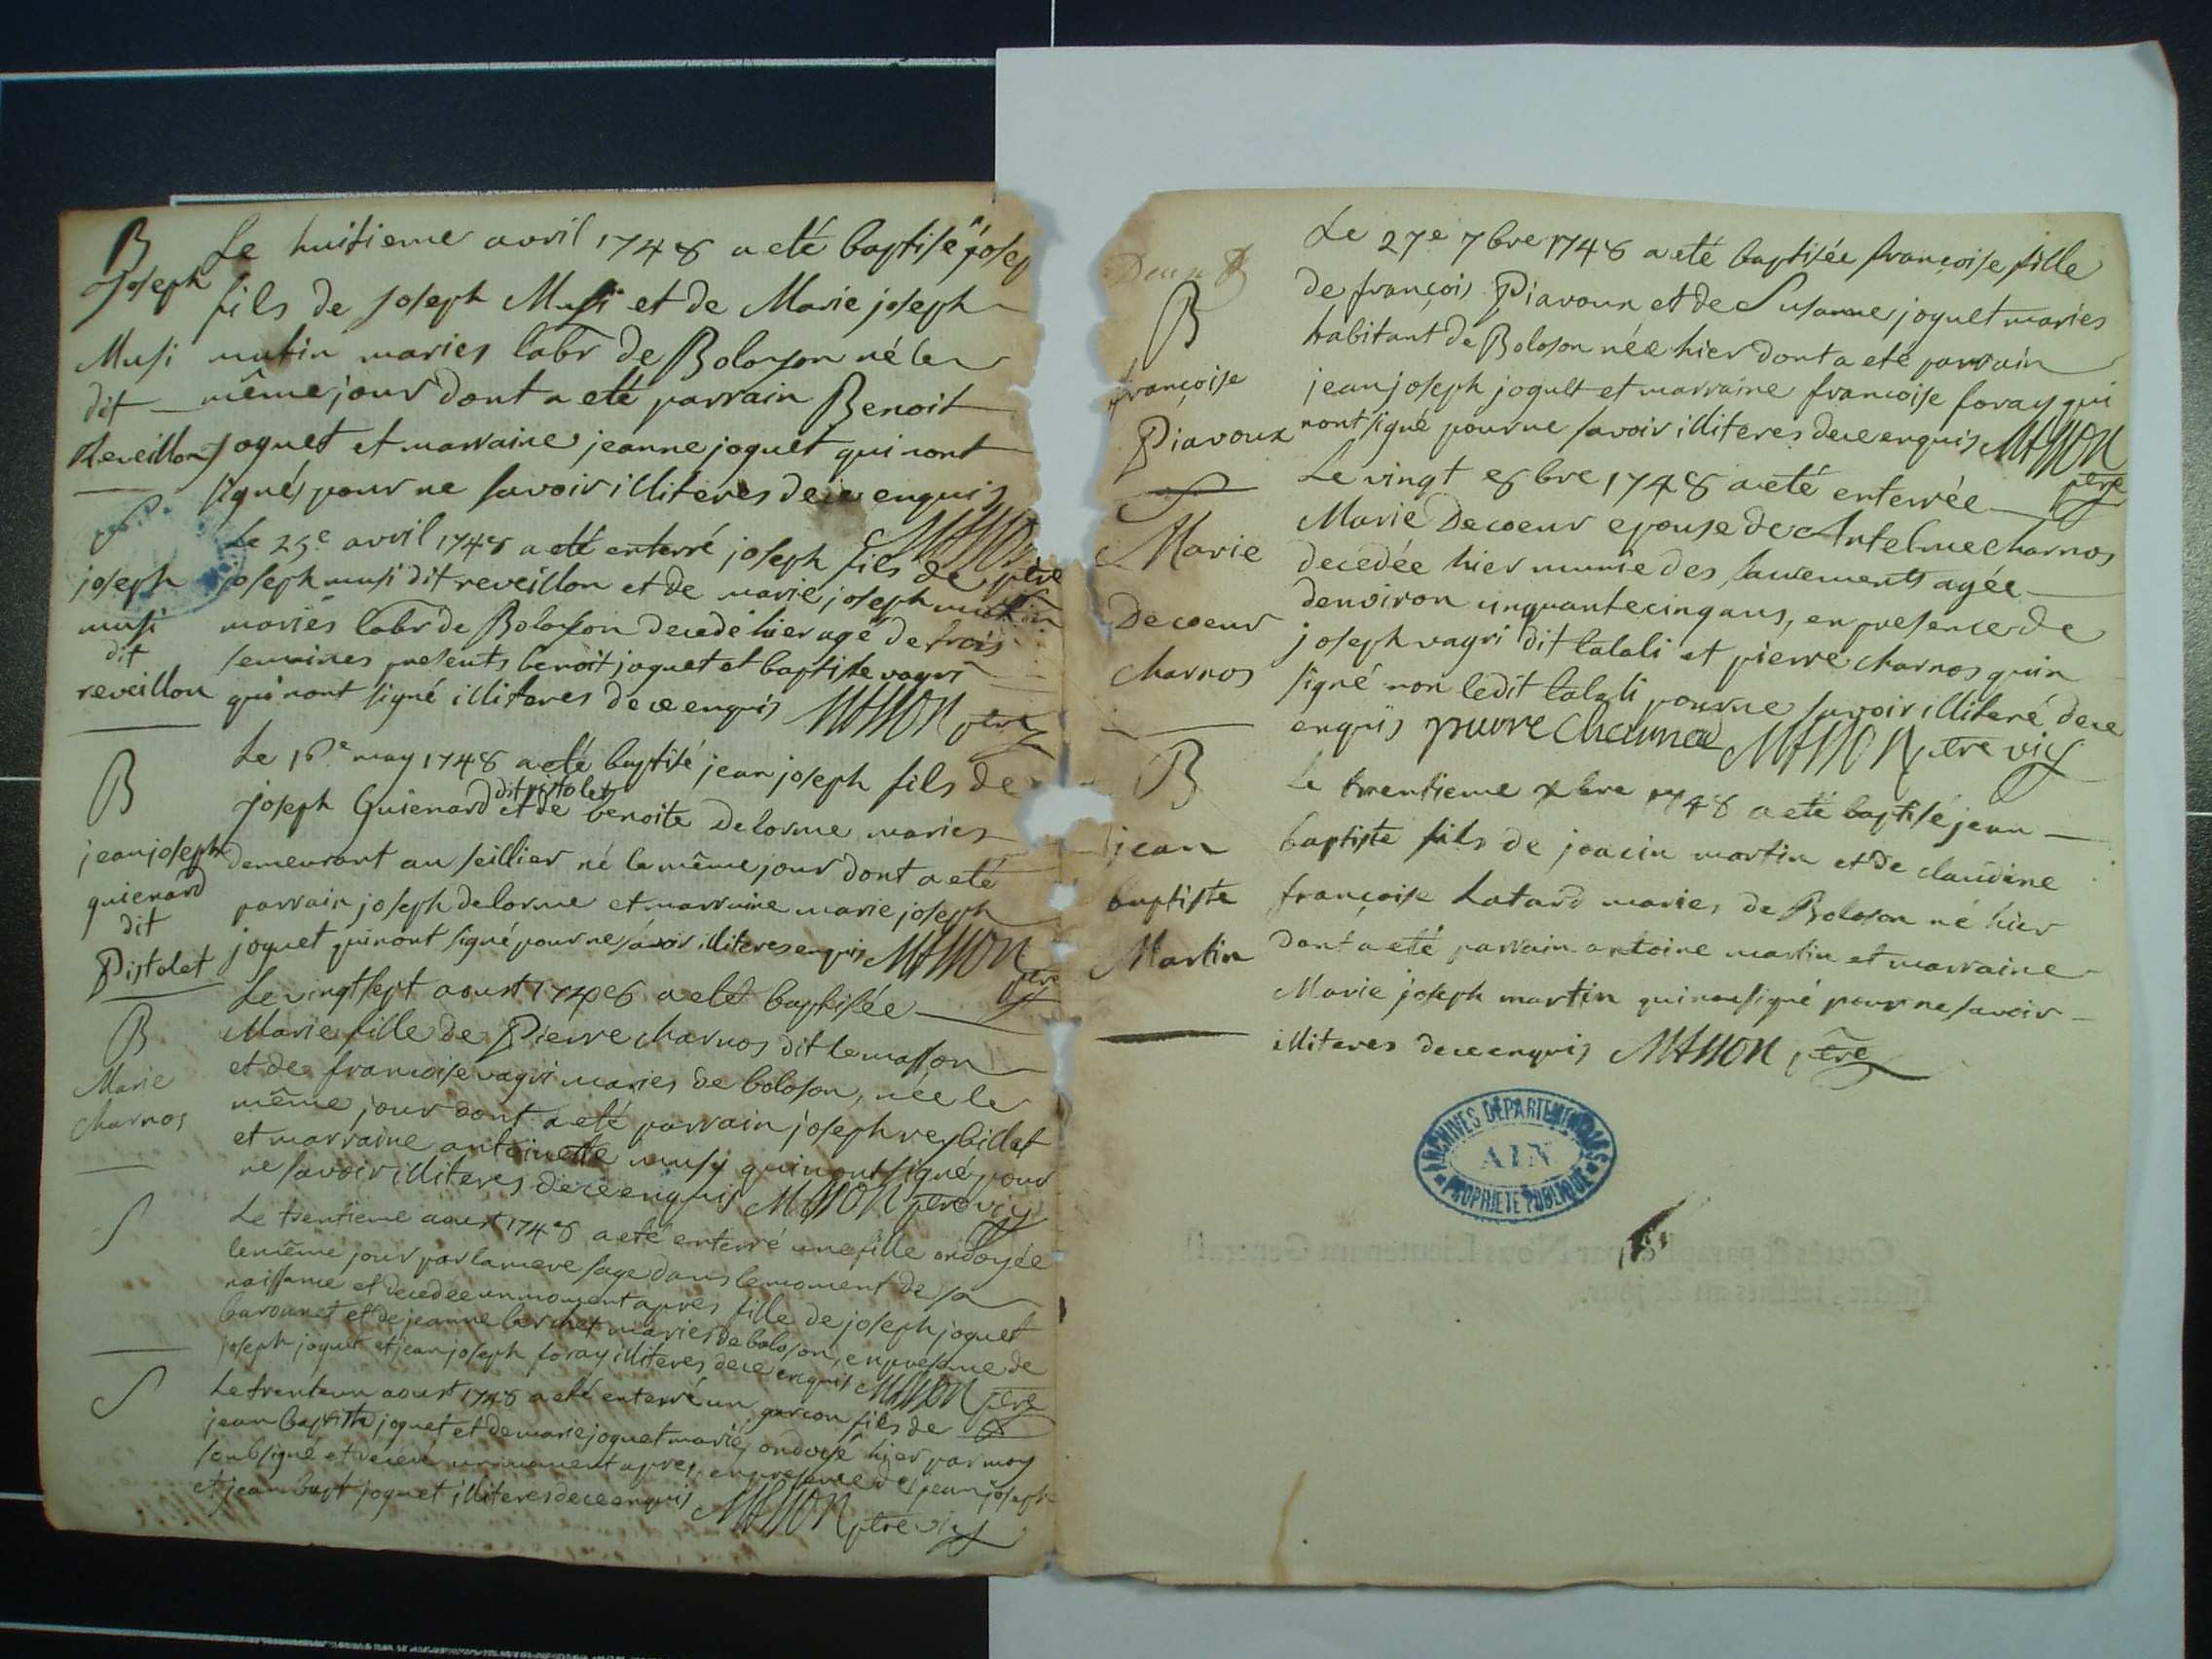 B
Joseph
Musi
dit
Reveillon
Le huitieme avril 1748 a eté baptisé josep
fils de joseph Musi et de Marie joseph
mutin maries labr de Bolozon né le
même jour dont a eté parrain Benoit
joguet et marraine jeanne joguet qui nont
signé pour ne savoir illiteres de ce enquis
MASSON ptre
S
joseph
musi
dit
reveillon
Le 25e avril 1748 a eté enterré joseph fils de
joseph musi dit reveillon et de marie joseph mutin
mariés labr de Bolozon decedé hier agé de trois
semaines presents benoit joguet et baptiste vagri
qui nont signé illiteres de ce enquis MASSON ptre
B
jean joseph
guienard
dit
Pistolet
Le 16e may 1748 a eté baptisé jean joseph fils de
joseph Guienard dit pistolet et de benoite Delorme maries
demeurant au seillier né le même jour dont a eté
parrain joseph delorme et marraine marie joseph
joguet qui nont signé pour ne savoir illiteres enquis MASSON ptre
B
Marie
charnos
Le vingt sept aoust 1748 a eté baptisée
Marie fille de Pierre charnos dit le masson
et de francoise vagri maries de boloson, née le
même jour dont a eté parrain joseph reybillat
et marraine antoinette musy qui nont signé pour
ne savoir illiteres de ce enquis MASSON ptre vic
S
Le trentieme aoust 1748 a eté enterré une fille ondoyée
le même jour par la mere sage dans le moment de sa
naissance et decedée un moment apres fille de joseph joguet
barounet et de jeanne berchet maries de boloson, en presence de
joseph joguet et jean joseph foray illiteres de ce enquis MASSON ptre
S
Le trente un aoust 1748 a eté enterré un garcon fils de
jean baptiste joguet et de marie joguet mariés ondoyé hier par moy
soubsigné et decedé un moment apres, en presence de jean joseph
et jean bapt joguet illiteres de ce enquis
MASSON ptre vic
B
françoise
Piavoux
Le 27e 7bre 1748 a eté baptisée françoise fille
de françois Piavoux et de Susanne joguet maries
habitant de Boloson née hier dont a eté parrain
jean joseph joguet et marraine francoise foray qui
nont signé pour ne savoir illiteres de ce enquis MASSON ptre
S
Marie
Decoeur
charnos
Le vingt 8bre 1748 a eté enterrée
Marie Decoeur epouse de Antelme charnos
decedée hier munie des sacrements agée
denviron cinquante cinq ans, en presence de
joseph vagri dit talali et pierre charnos qui n
signé non ledit talali pour ne savoir illiteré de ce
enquis MASSON ptre vic
B
jean
baptiste
Martin
Le trentieme xbre 1748 a eté baptisé jean
baptiste fils de joacin martin et de claudine
françoise Lutard maries de Boloson né hier
dont a eté parrain antoine martin et marraine
Marie joseph martin qui non signé pour ne savoir
illiteres de ce enquis MASSON ptre
ARCHIVES DEPARTEMENTALES
AIN
PROPRIETE PUBLIQUE